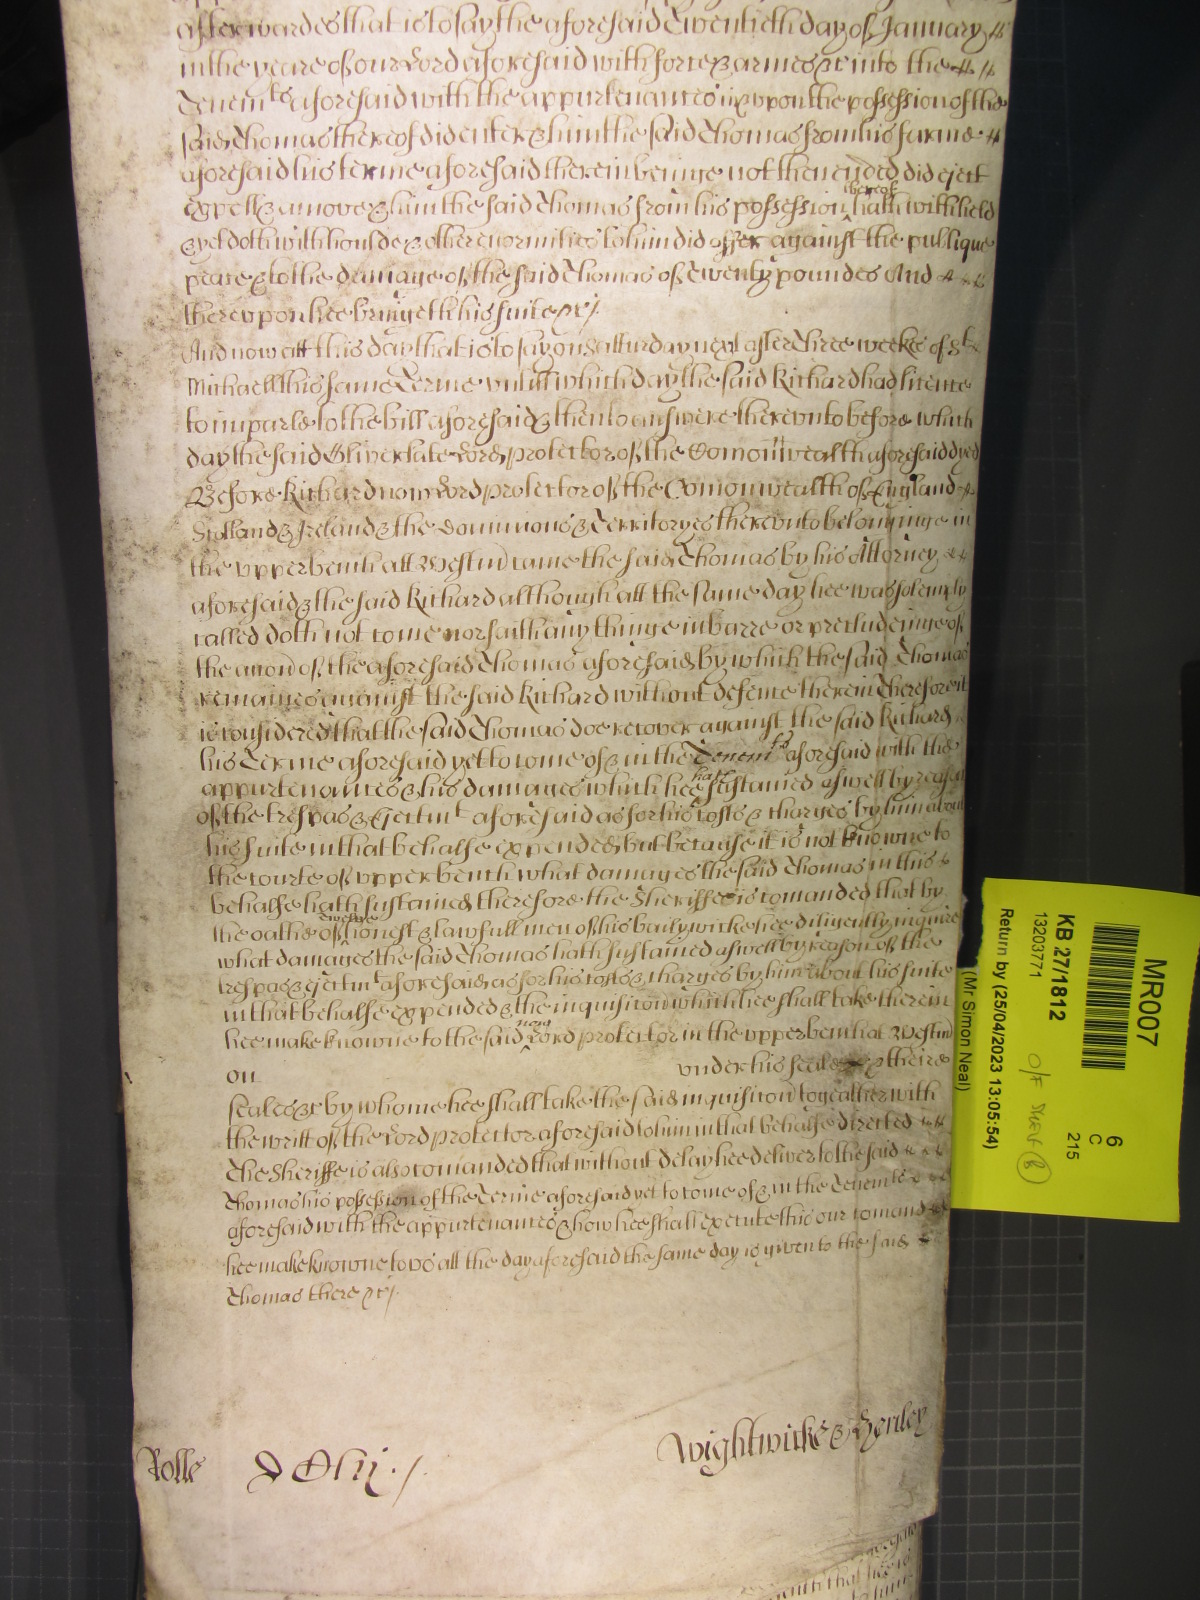 afterwardes that is to say the aforesaid Twentieth day of January
in the yeare of our Lord aforesaid with force & armes &c into the
Tenemts aforesaid with the appurtenances in & upon the possession of the
said Thomas thereof did enter & him the said Thomas from his farme
aforesaid his terme aforesaid therein beinge not then ended did eject
expell & amove & him the said Thomas from his possession thereof hath withheld
& yet doth withhould & other enormities to him did offer against the publique
peace & to the damage of the said Thomas of Twenty poundes And
thereupon hee bringeth his suite &c
And now att this day that is to say on Satturday next after three weekes of St
Michaell this same Terme untill which day the said Richard had licence
to imparle to the bill aforesaid & then to answere thereunto before which
day the said Oliver late Lord protector of the Comonwealth aforesaid dyed
Before Richard now Lord protector of the Comonwealth of England
Scotland & Ireland & the dominions & Territoryes thereunto belonginge in
the upper bench att Westm came the said Thomas by his Attorney
aforesaid & the said Richard although att the same day hee was solemply
called doth not come nor saith any thinge in barre or precludeinge of
the accon of the aforesaid Thomas aforesaid by which the said Thomas
remaines against the said Richard without defence therein Therefore it
is considered that the said Thomas doe recover against the said Richard
his Terme aforesaid yet to come of & in the Tenemts aforesaid with the
appurtenances & his damages which hee hath sustained aswell by reason
of the trespas & Ejectmt aforesaid as for his costs & charges by him about
his suite in that behalfe expended but because it is not knowne to
the courte of upper bench what damages the said Thomas in this
behalfe hath sustained therefore the Sheriffe is comanded that by
the oathe of twelve honest & lawfull men of his bailywicke hee diligently inquire
what damages the said Thomas hath sustained aswell by reason of the
trespas & ejectmt aforesaid as for his costs & charges by him about his suite
in that behalfe expended & the inquisicon which hee shall take therein
hee make knowne to the said now Lord protector in the upper bench at Westm
on under his seale & theire
seales &c by whome hee shall take the said inquisicon togeather with
the writt of the Lord protector aforesaid to him in that behalfe directed
The Sheriffe is also comanded that without delay hee deliver to the said
Thomas his possession of the Terme aforesaid yet to come of & in the Tenemts
aforesaid with the appurtenances & how hee shall execute this our comand
hee make knowne to us att the day aforesaid the same day is given to the said
Thomas there &c
Rolle
Wightwicke & Henley
MR007
6
C
215
KB 27/1812
13203771
O/F SHELF B
Return by (25/04/2023 13:05:54)
(Mr Simon Neal)